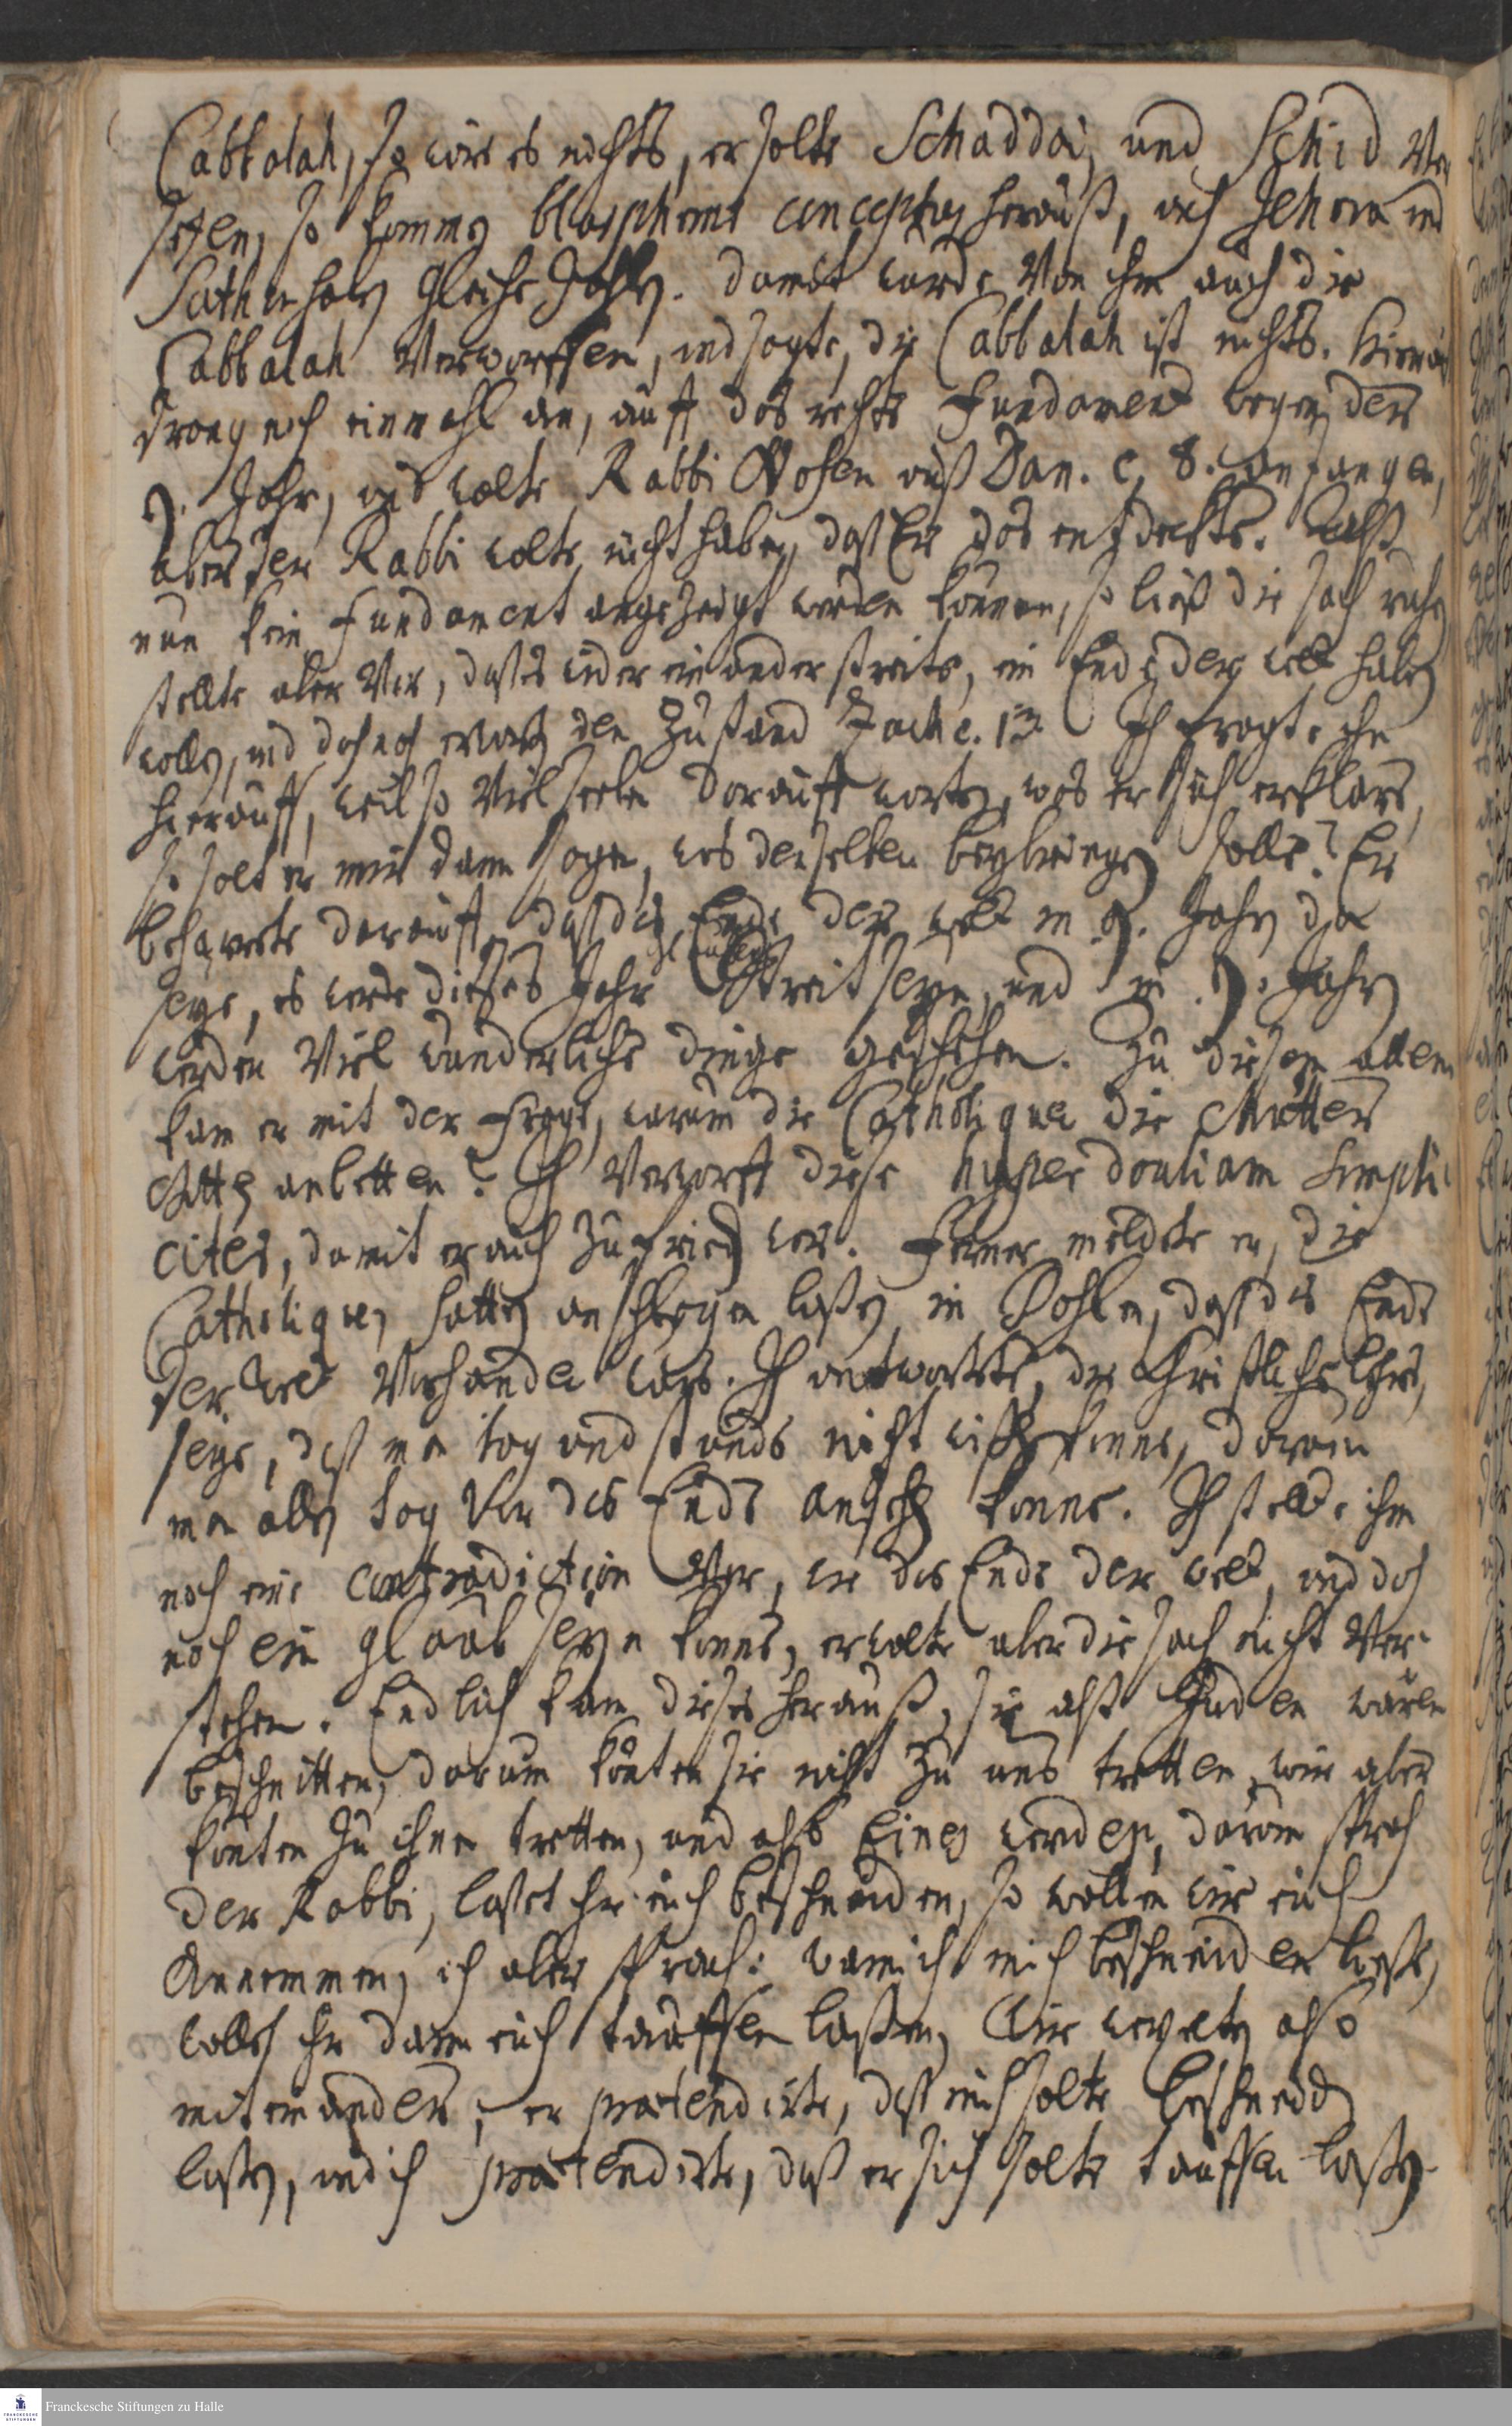 Cabbalah, so wäre es nichts, er solte Schaddai, und Schid ver
setzen, so kommen blaspheme conceptus herauß, auch Jehova und
Sathan haben gleiche Zahlen. Damit wurde von ihm auch die
Cabbalah verworffen, und sagte, die Cabbalah ist nichts. Hierauf
drang noch einmahl an, auff das rechte Fundament wegen der
9. Jahr, und wolte Rabbi Mosen auß Dan. c. 8. anfangen,
aber der Rabbi wolte nicht haben, daß Er das entdeckte. Alß
nun kein Fundament angezeigt werden können, so ließ die sach ruhen
stellte aber vor, daß es wider einander streite, ein Ende der welt haben
wollen, und doch noch erwarten den Zustand Zach c. 13 Ich fragte ihn
hierauff, weil so viel seelen darauff warten, was er sich erklare,
so solt er mir dann sagen, was denselben beybringen solle? Er
beharrete darauff, daß das Ende der welt in 9. Jahren da
seye, es werde dieses Jahr Streit seyn, und in 9. Jahren
werden viel wunderliche dinge geschehen. Zu diesem allem
kam er mit der Frage, warum die Catholiquen die Mutter
Gottes anbetten? Ich verworff diese hyperdouliam simpli-
citer, damit er auch zufrieden war. Ferner meldete er, die
Catholiquen hätten anschlagen laßen in Pohlen, daß das Ende
der welt vorhanden wäre. Ich antwortete, die Christliche Lehre
seye, daß man tag und stunde nicht wißen könne, darum
man allen tag vor das Ende ansehen könne. Ich stellte ihm
noch eine contradiction vor, wie das Ende der welt, und doch
noch ein glaub seyn könne, er wolte aber die sach nicht ver-
stehen. Endlich kam dieses herauß, sie alß Juden wären
beschnitten, darum könten sie nicht zu uns tretten, wir aber
könten zu ihnen tretten, und also Eines werden, darum sprach
der Rabbi, laßet ihr euch beschneiden, so wollen wir euch
Annemmen, ich aber sprach: wann ich mich beschneiden ließe,
wollet ihr dann euch tauffen laßen, Wir also
mit einander, er praetendirte, daß mich solte beschneiden
laßen, und ich praetendirte, daß er sich solte tauffen laßen.
Franckesche Stiftungen zu Halle